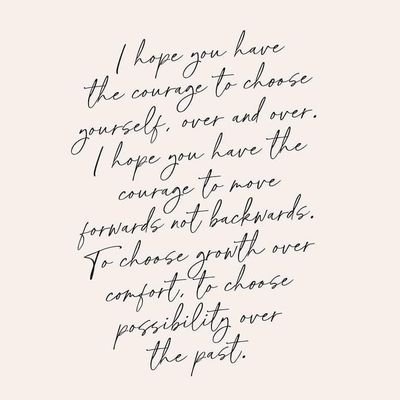 I hope you have
the courage to choose
yourself, over and over.
I hope you have the
courage to move
forwards not backwards.
To choose growth over
comfort, to choose
possibility over
the past.